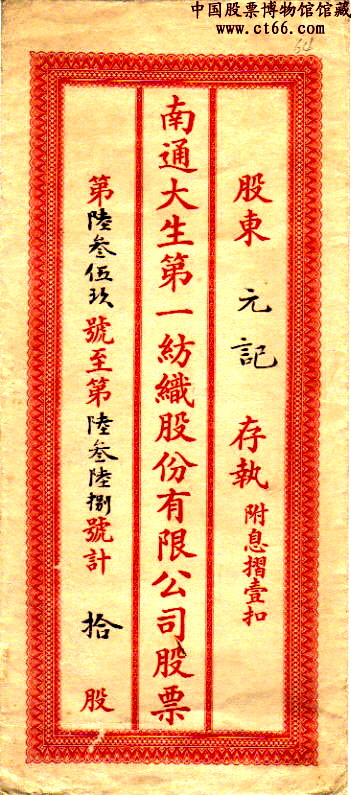 中国股票博物馆馆藏
www.ct66.com
54
股東 元記 存執 附息摺壹扣
南通大生第一紡織股份有限公司股票
第陸叁伍玖號至第陸叁陸捌號計 拾 股